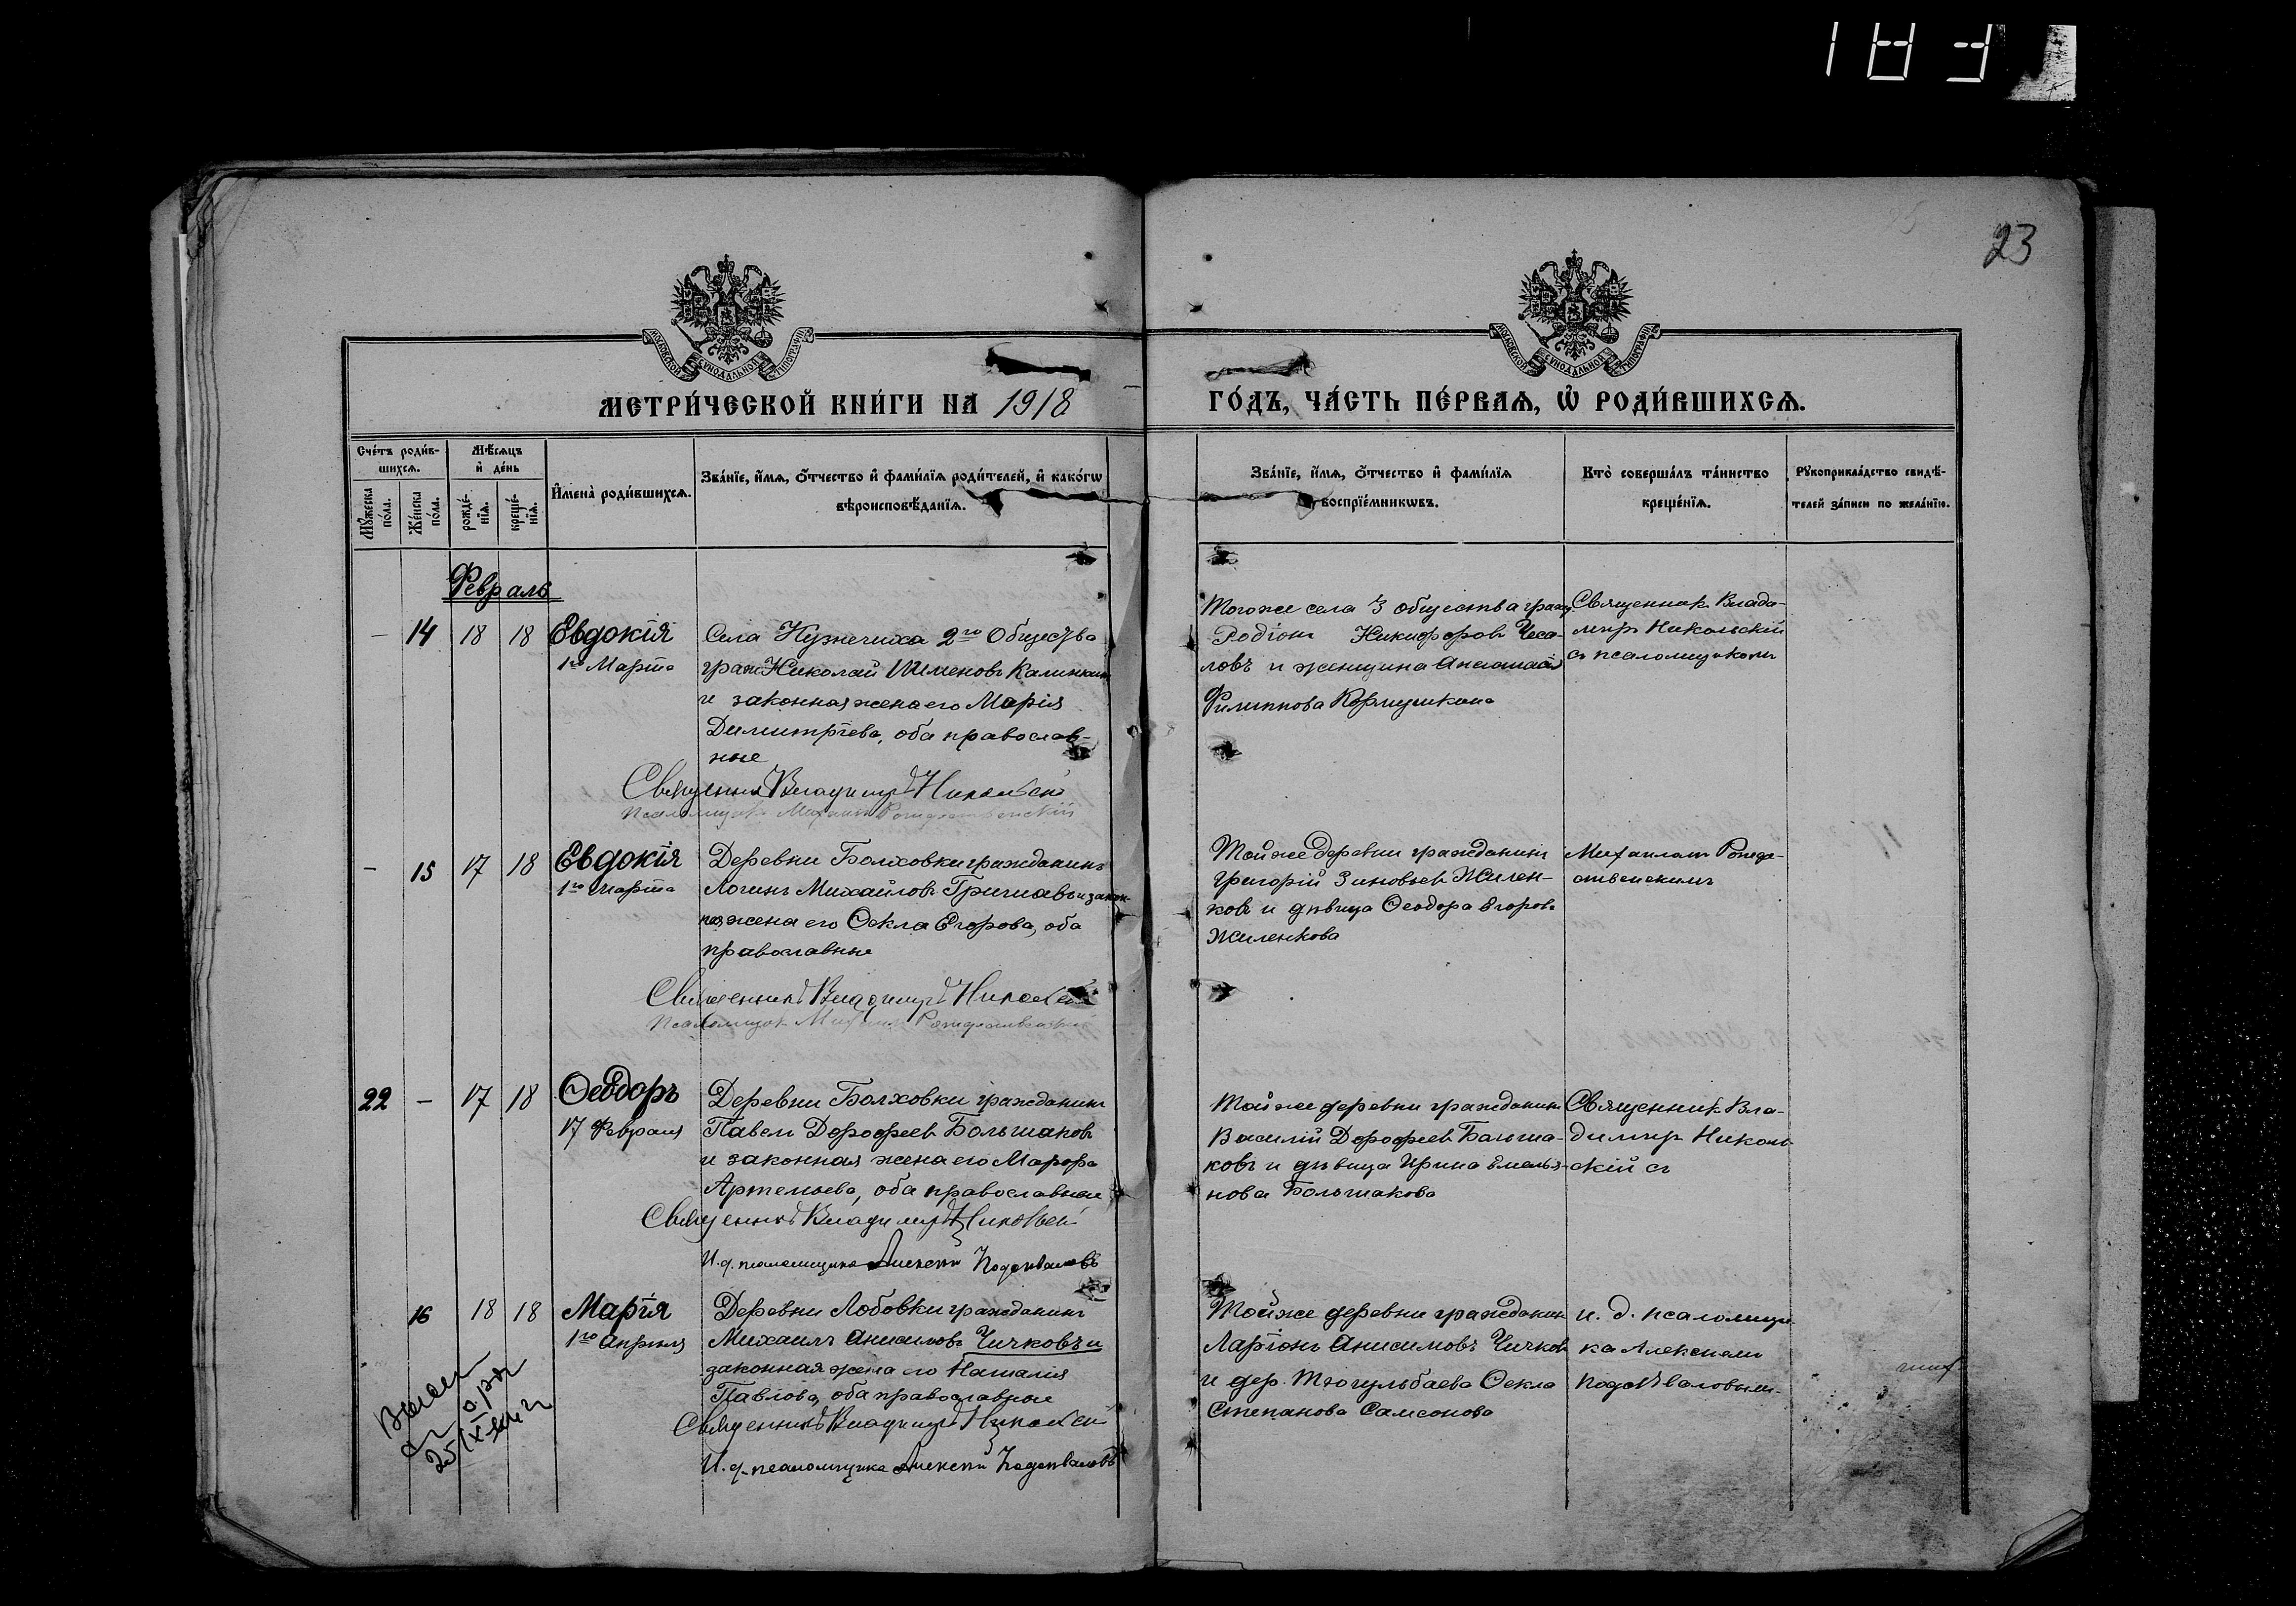 23
МОСКОВСКОЙ СѴНОДАЛЬНОЙ ТИПОГРАФІИ
МОСКОВСКОЙ СѴНОДАЛЬНОЙ ТИПОГРАФІИ
МЕТРИ́ЧЕСКОЙ КНИ́ГИ НА 1918 ГО́ДЪ, ЧА́СТЬ ПЕ́РВАѦ, Ѡ҆ РОДИ́ВШИХСѦ.
Сче́тъ роди́в-
шихсѧ.
Мꙋ́жеска
по́ла.
Же́нска
по́ла.
Мѣ́сѧцъ
и҆ де́нь
рожде́-
нїѧ.
креще́-
нїѧ.
И҆мена̀ роди́вшихсѧ.
Зва́нїе, и҆́мѧ, ѻ҆́тчество и҆ фами́лїѧ роди́телей, и҆ како́гѡ
вѣроисповѣ́данїѧ.
Зва́нїе, и҆́мѧ, ѻ҆́тчество и҆ фами́лїѧ
воспрїе́мникѡвъ.
Кто̀ соверша́лъ та́инство
креще́нїѧ.
Рꙋкоприкла́дство свидѣ́-
телей за́писи по жела́нїю.
Февраль
– 14 18 18 Евдокія
1го Марта
Села Кузнечиха 2го Общества
граж. Николай Пименовъ Калинкинъ
и законная жена его Марія
Димитріева, оба православ-
ные
Священникъ Владимиръ Никольскій
Псаломщикъ Михаилъ Рождественскій
Тогоже села 3 общества граж.
Родіонъ Никифоровъ Чеса-
ловъ и женщина Анастасія
Филиппова Кормушкина
Священникъ Влади-
миръ Никольскій
съ псаломщикомъ
– 15 17 18 Евдокія
1го Марта
Деревни Болховки гражданинъ
Логинъ Михайловъ Гришаевъ и закон-
ная жена его Ѳекла Егорова, оба
православные
Священникъ Владимиръ Никольскій
Псаломщикъ Михаилъ Рождественскій
Тойже деревни гражданинъ
Григорій Зиновьевъ Жилен-
ковъ и дѣвица Ѳеодора Егорова
Жиленкова
Михаиломъ Рожде-
ственскимъ
22 – 17 18 Ѳеодоръ
17 Февраля
Деревни Болховки гражданинъ
Павелъ Дорофеевъ Большаковъ
и законная жена его Марфа
Артемьева, оба православные
Священникъ Владимиръ Никольскій
И. д. псаломщика Алексѣй Подъяваловъ
Тойже деревни гражданинъ
Василій Дорофеевъ Больша-
ковъ и дѣвица Ирина Емелья-
нова Большакова
Священникъ Вла-
димиръ Николь-
скій съ
16 18 18 Марія
1го Апрѣля
Деревни Лобовки гражданинъ
Михаилъ Анисимовъ Чичковъ и
законная жена его Наталія
Павлова, оба православные
Священникъ Владимиръ Никольскій
И. д. псаломщика Алексѣй
Тойже деревни гражданинъ
Ларіонъ Анисимовъ Чичковъ
и дер. Тюгульбаева Ѳекла
Степанова Самсонова
и. д. псаломщи-
ка Алексѣемъ